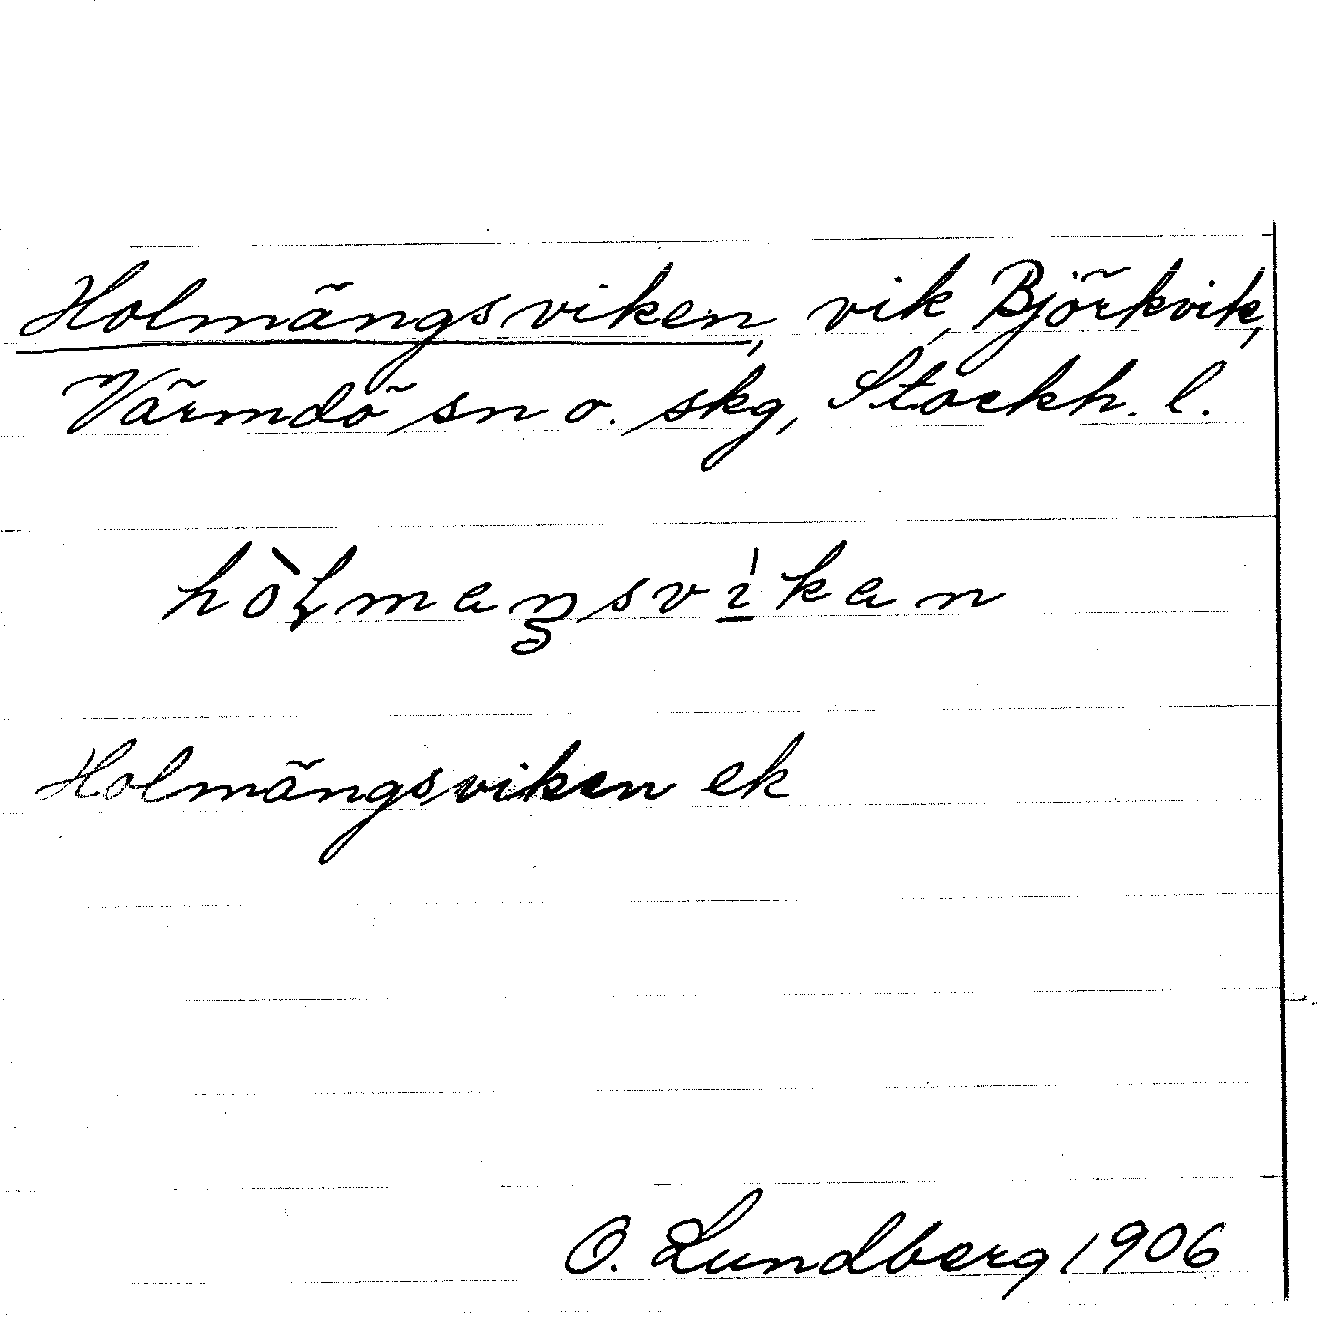 Holmängsviken, vik, Björkvik,
Värmdö sn o. skg, Stockh. l.
hòłmaŋsvi̱̍kan
Holmängsviken ek
O. Lundberg 1906